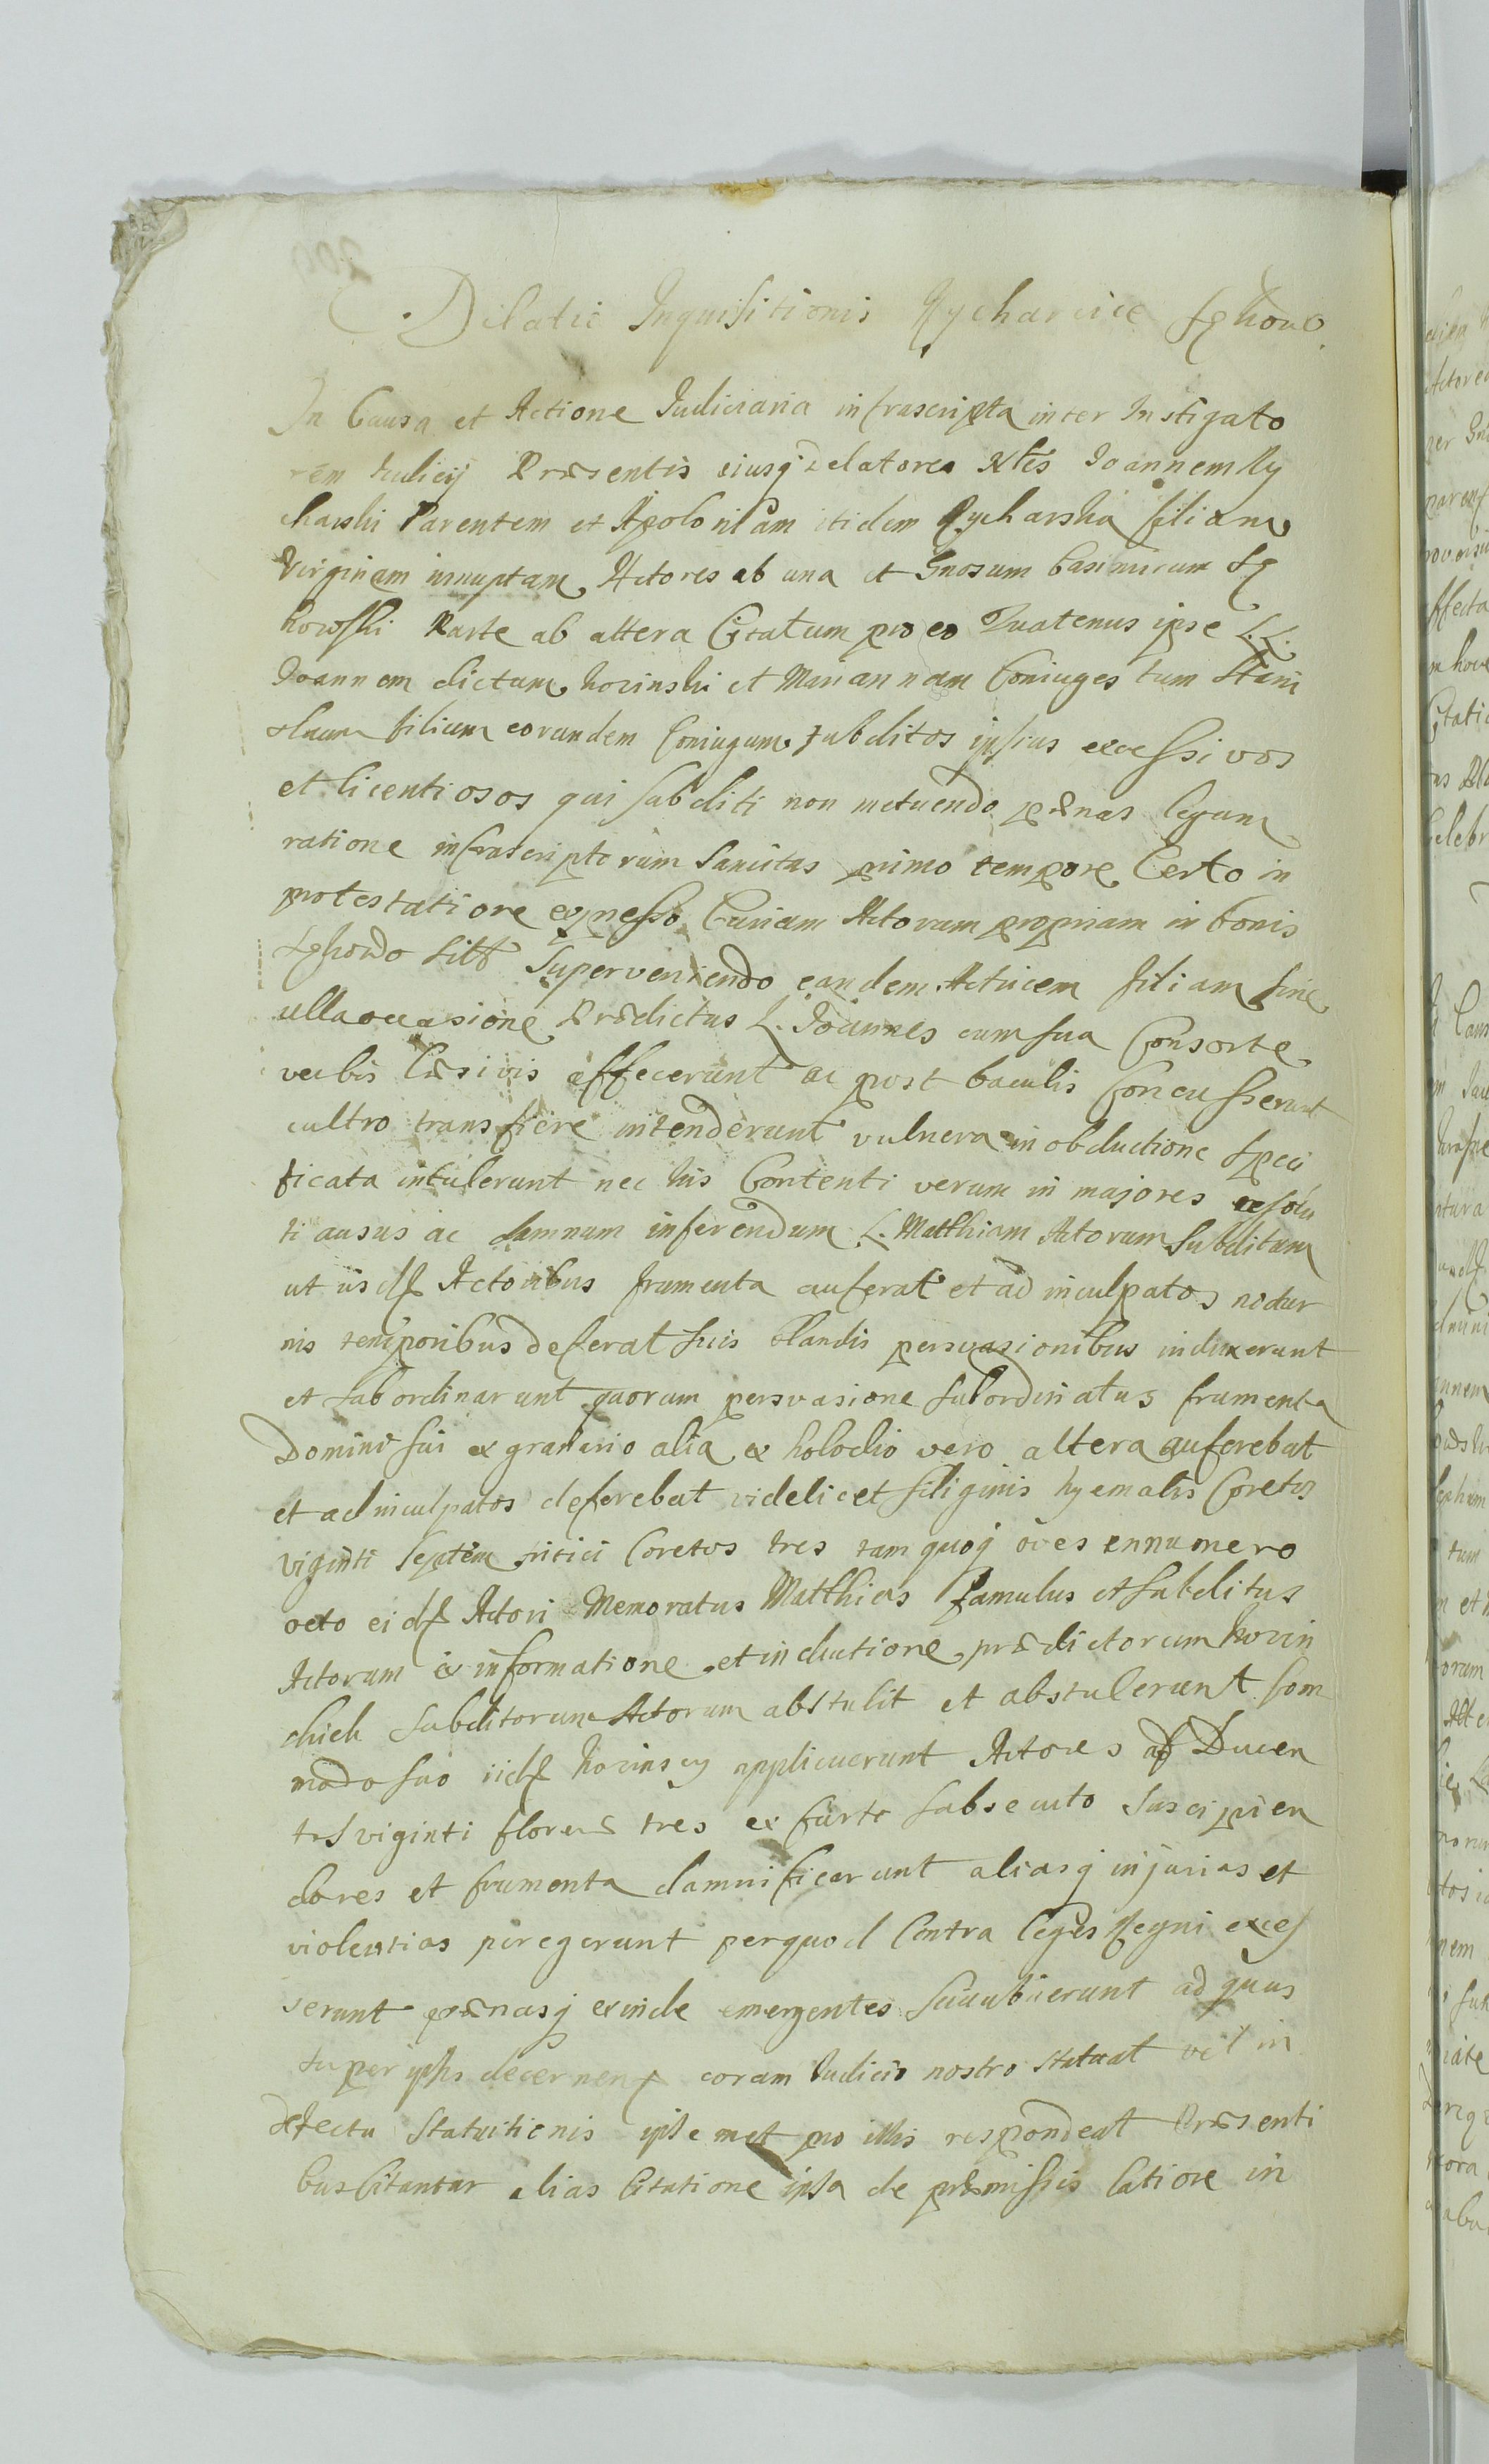 Dilatio Inquisitionis Rycharsice Lghowo
In Causa et Actione Judiciaria infrascripta inter Instigato
rem Judicij Præsentis eiusq delatores Nles Joannem Ry
charski Parentem et Apoloniam itidem Rycharska filiam
Virginem innuptam Actores ab una et Gnosum Casimirum Lg
howski Parte ab altera Citatum pro eo Quatenus ipse L.L.
Joannem dictum Kozinski et Mariannam Coniuges tum Stani
slaum filium eorundem Coniugum subditos ipsius excessivos
et licentiosos qui subditi non metuendo pænas legum
ratione infrascriptorum Sancitas primo tempore Certo in
protestatione expresso Curiam Actorum propriam in bonis
Lghowo sitt Superveniendo eandem Actricem filiam sine
ulla occasione Prædictus L. Joannes cum sua Consorte
verbis Læsivis affecerunt ac post baculis Concusserunt
cultro transfiere intenderunt vulnera in obductione speci
ficata intulerunt nec his Contenti verum in majores resolu
ti ausus ac damnum inferendum L. Matthiam Actorum Subditum
ut iisdf Actoribus frumenta auferat et ad inculpatos noctur
nis temporibus deferat suis blandis persvasionibus induxerunt
et subordinarunt quorum persvasione subordinatus frumenta
Domini sui ex granario alia ex holodio vero altera auferebat
et ad inculpatos deferebat videlicet siliginis hyemalis Coretos
viginti septem tritici Coretos tres tam quoq oves ennumero
octo eidf Actori Memoratus Matthias famulus et subditus
Actorum ex informatione et inductione prædictorum Kozin
skich subditorum Actorum abstulit et abstulerunt Com
modo suo iidf Kozinscy applicuerunt Actores ad Ducen
tos viginti florenos tres ex furto subsecuto suscipien
dores et frumenta damnificarunt aliasq injurias et
violentias peregerunt perquod Contra leges Regni exces
serunt pænasq exinde emergentes succubuerunt ad quas
super ipsis decernend coram Judicio nostro statuat vel in
defectu Statuitionis ipsemet pro illis respondeat Præsenti
bus Citantur alias Citatione ipsa de præmissis latiore in